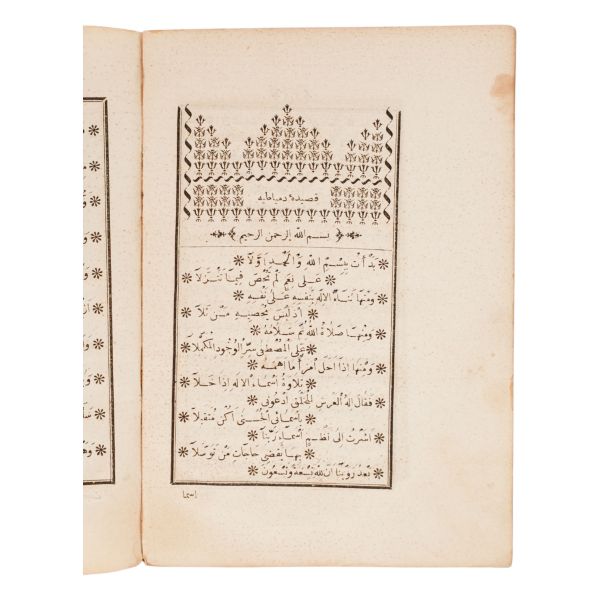 قصيدهٔ دمياطيه
بسم الله الرحمن الرحيم
بَدَأتُ بِبِسْمِ اللهِ وَالْحَمْدِ اَوَّلَا
عَلَى نِعَمٍ لَمْ تُحْصَ فِيمَا تَنَزَّلَا
وَمِنْهَا ثَنَاءُ الْاِلٰهِ بِنَفْسِهِ عَلَى نَفْسِهِ
اِذْ لَيْسَ يُحْصِيهِ مَنْ تَلَا
وَمِنْهَا صَلَاةُ اللهِ ثُمَّ سَلَامُهُ
عَلَى الْمُصْطَفَى سِرِّ الْوُجُودِ الْمُكَمَّلَا
وَمِنْهَا اِذَا اَحَلَّ اَمْرًا مَا اَهَمَّهُ
تِلَاوَةُ اَسْمَاءِ الْاِلٰهِ اِذَا خَلَا
فَقَالَ اِلٰهُ الْعَرْشِ لِلْخَلْقِ اُدْعُونِي
بِاَسْمَائِيَ الْحُسْنَى اَكُنْ مُتَقَبِّلَا
اَشَرْتُ اِلَى نَظِيمِ اَسْمَاءِ رَبِّنَا
بِهَا يَقْضِي حَاجَاتِ مَنْ تَوَسَّلَا
بَعْدُ رُوِيْنَا اَنَّ لِلهِ تِسْعَةً وَتِسْعُونَ
اسما